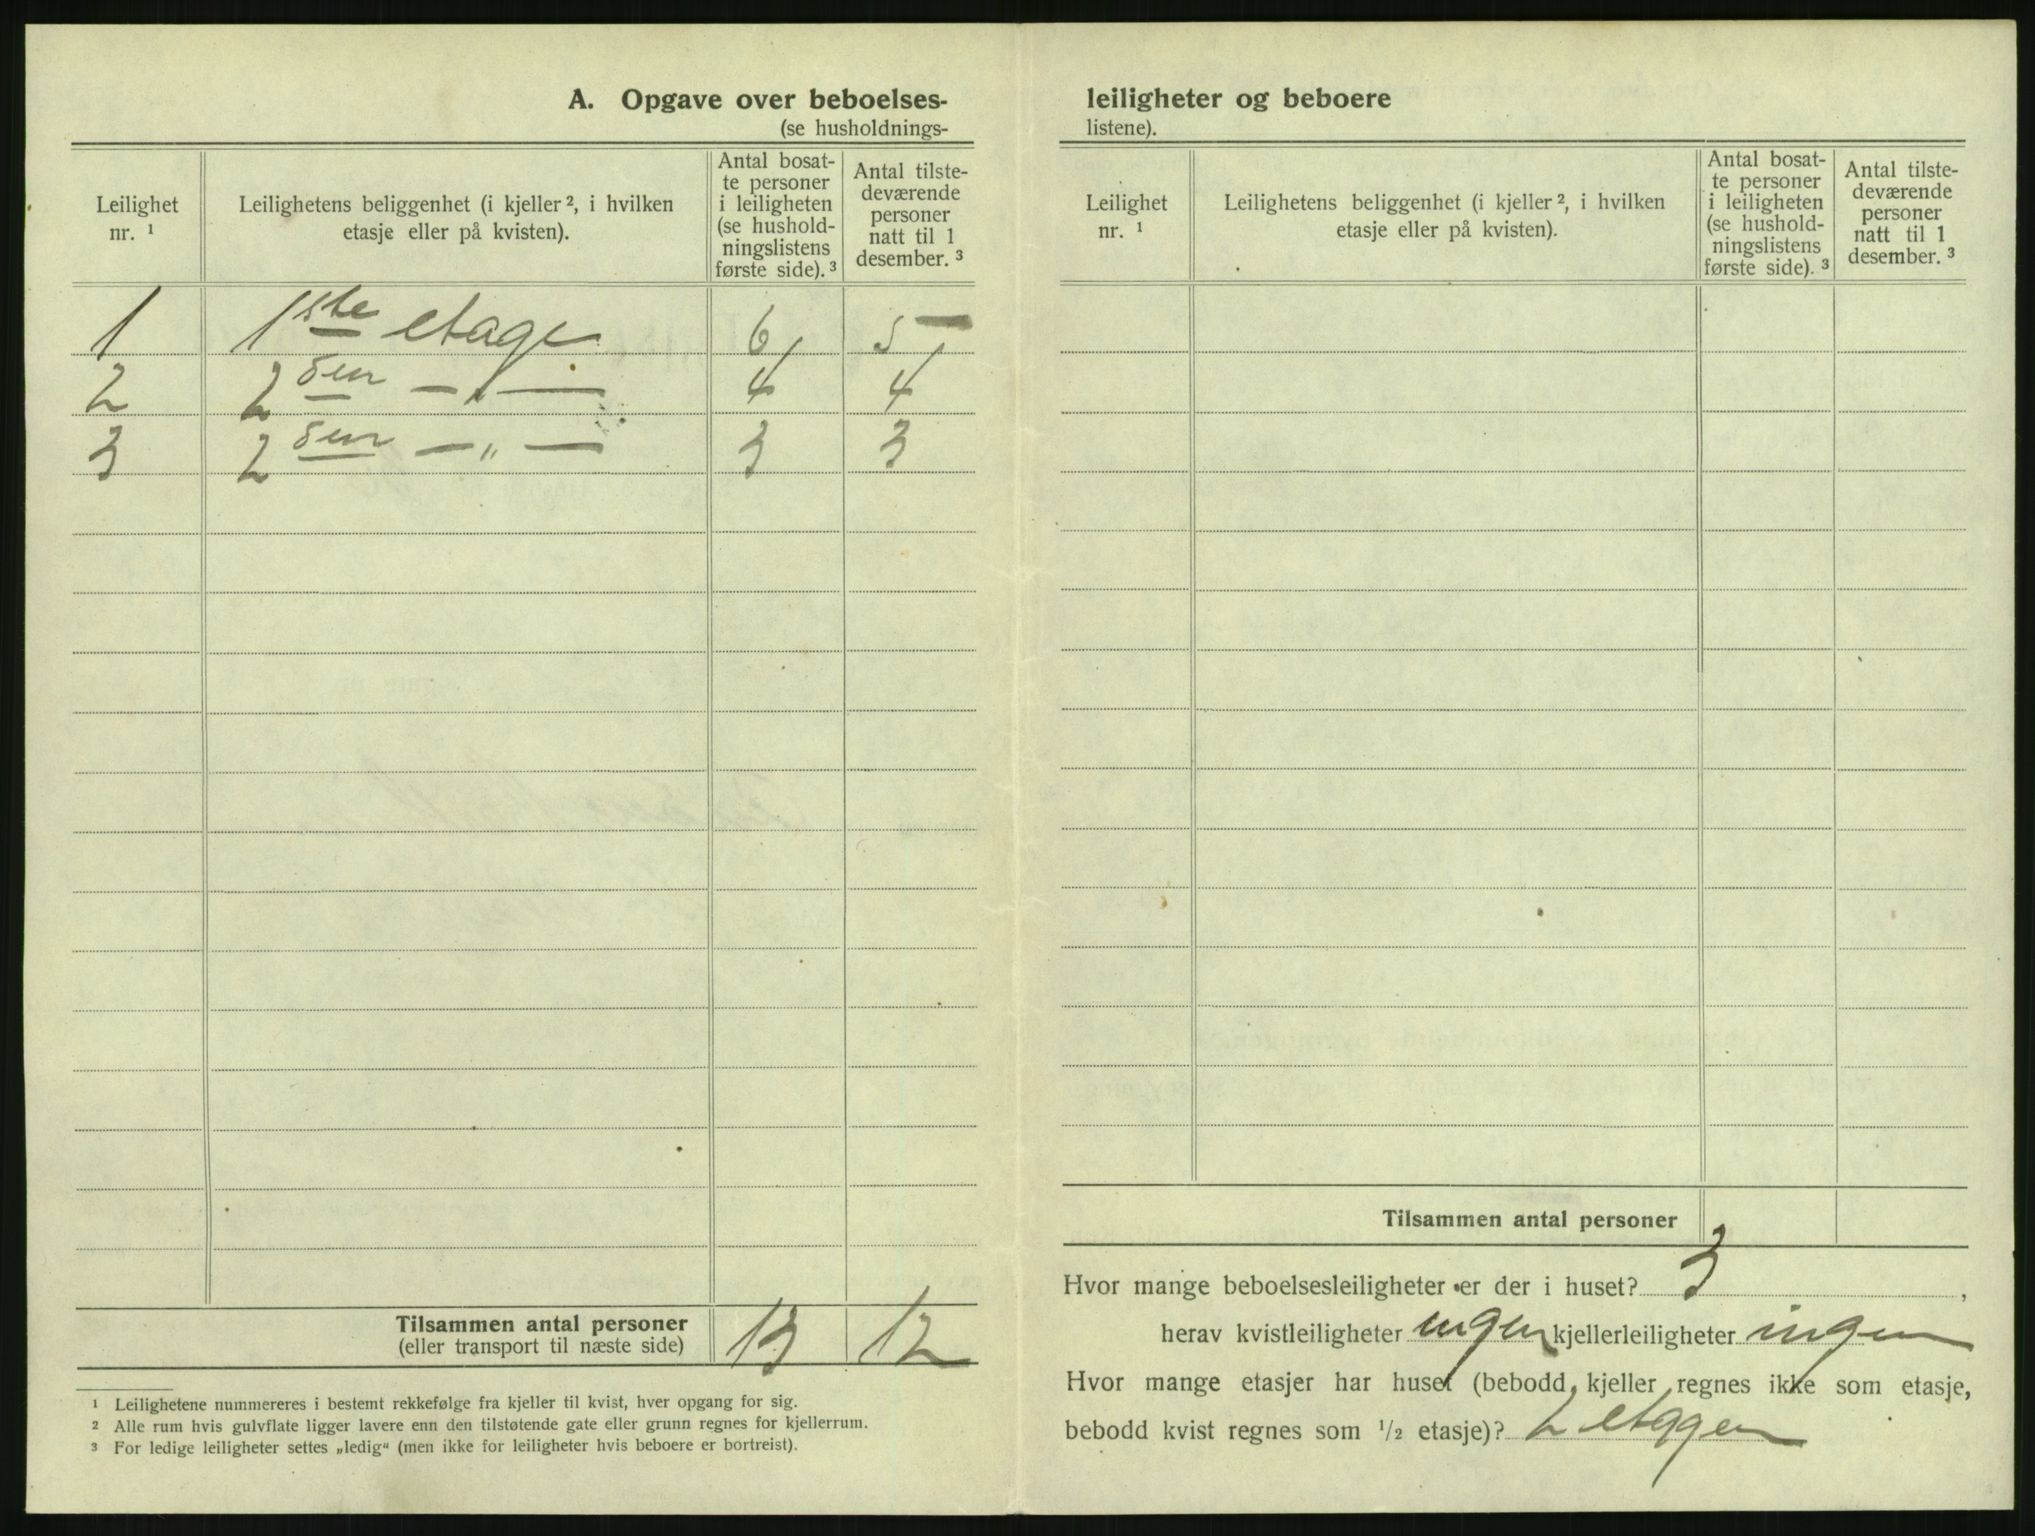 A. Opgave over beboelses-
(se husholdnings-
Leilighet
nr. ¹
Leilighetens beliggenhet (i kjeller ², i hvilken
etasje eller på kvisten).
Antal bosat-
te personer
i leiligheten
(se hushold-
ningslistens
første side). ³
Antal tilste-
deværende
personer
natt til 1
desember. ³
1 1ste etage 6 5
2 2den — " — 4 4
3 2den — " — 3 3
Tilsammen antal personer 13 12
(eller transport til næste side)
¹ Leilighetene nummereres i bestemt rekkefølge fra kjeller til kvist, hver opgang for sig.
² Alle rum hvis gulvflate ligger lavere enn den tilstøtende gate eller grunn regnes for kjellerrum.
³ For ledige leiligheter settes „ledig“ (men ikke for leiligheter hvis beboere er bortreist).
leiligheter og beboere
listene).
Leilighet
nr. ¹
Leilighetens beliggenhet (i kjeller ², i hvilken
etasje eller på kvisten).
Antal bosat-
te personer
i leiligheten
(se hushold-
ningslistens
første side). ³
Antal tilste-
deværende
personer
natt til 1
desember. ³
Tilsammen antal personer
Hvor mange beboelsesleiligheter er der i huset? 3,
herav kvistleiligheter ingen kjellerleiligheter ingen
Hvor mange etasjer har huset (bebodd kjeller regnes ikke som etasje,
bebodd kvist regnes som ½ etasje)? 2 etager